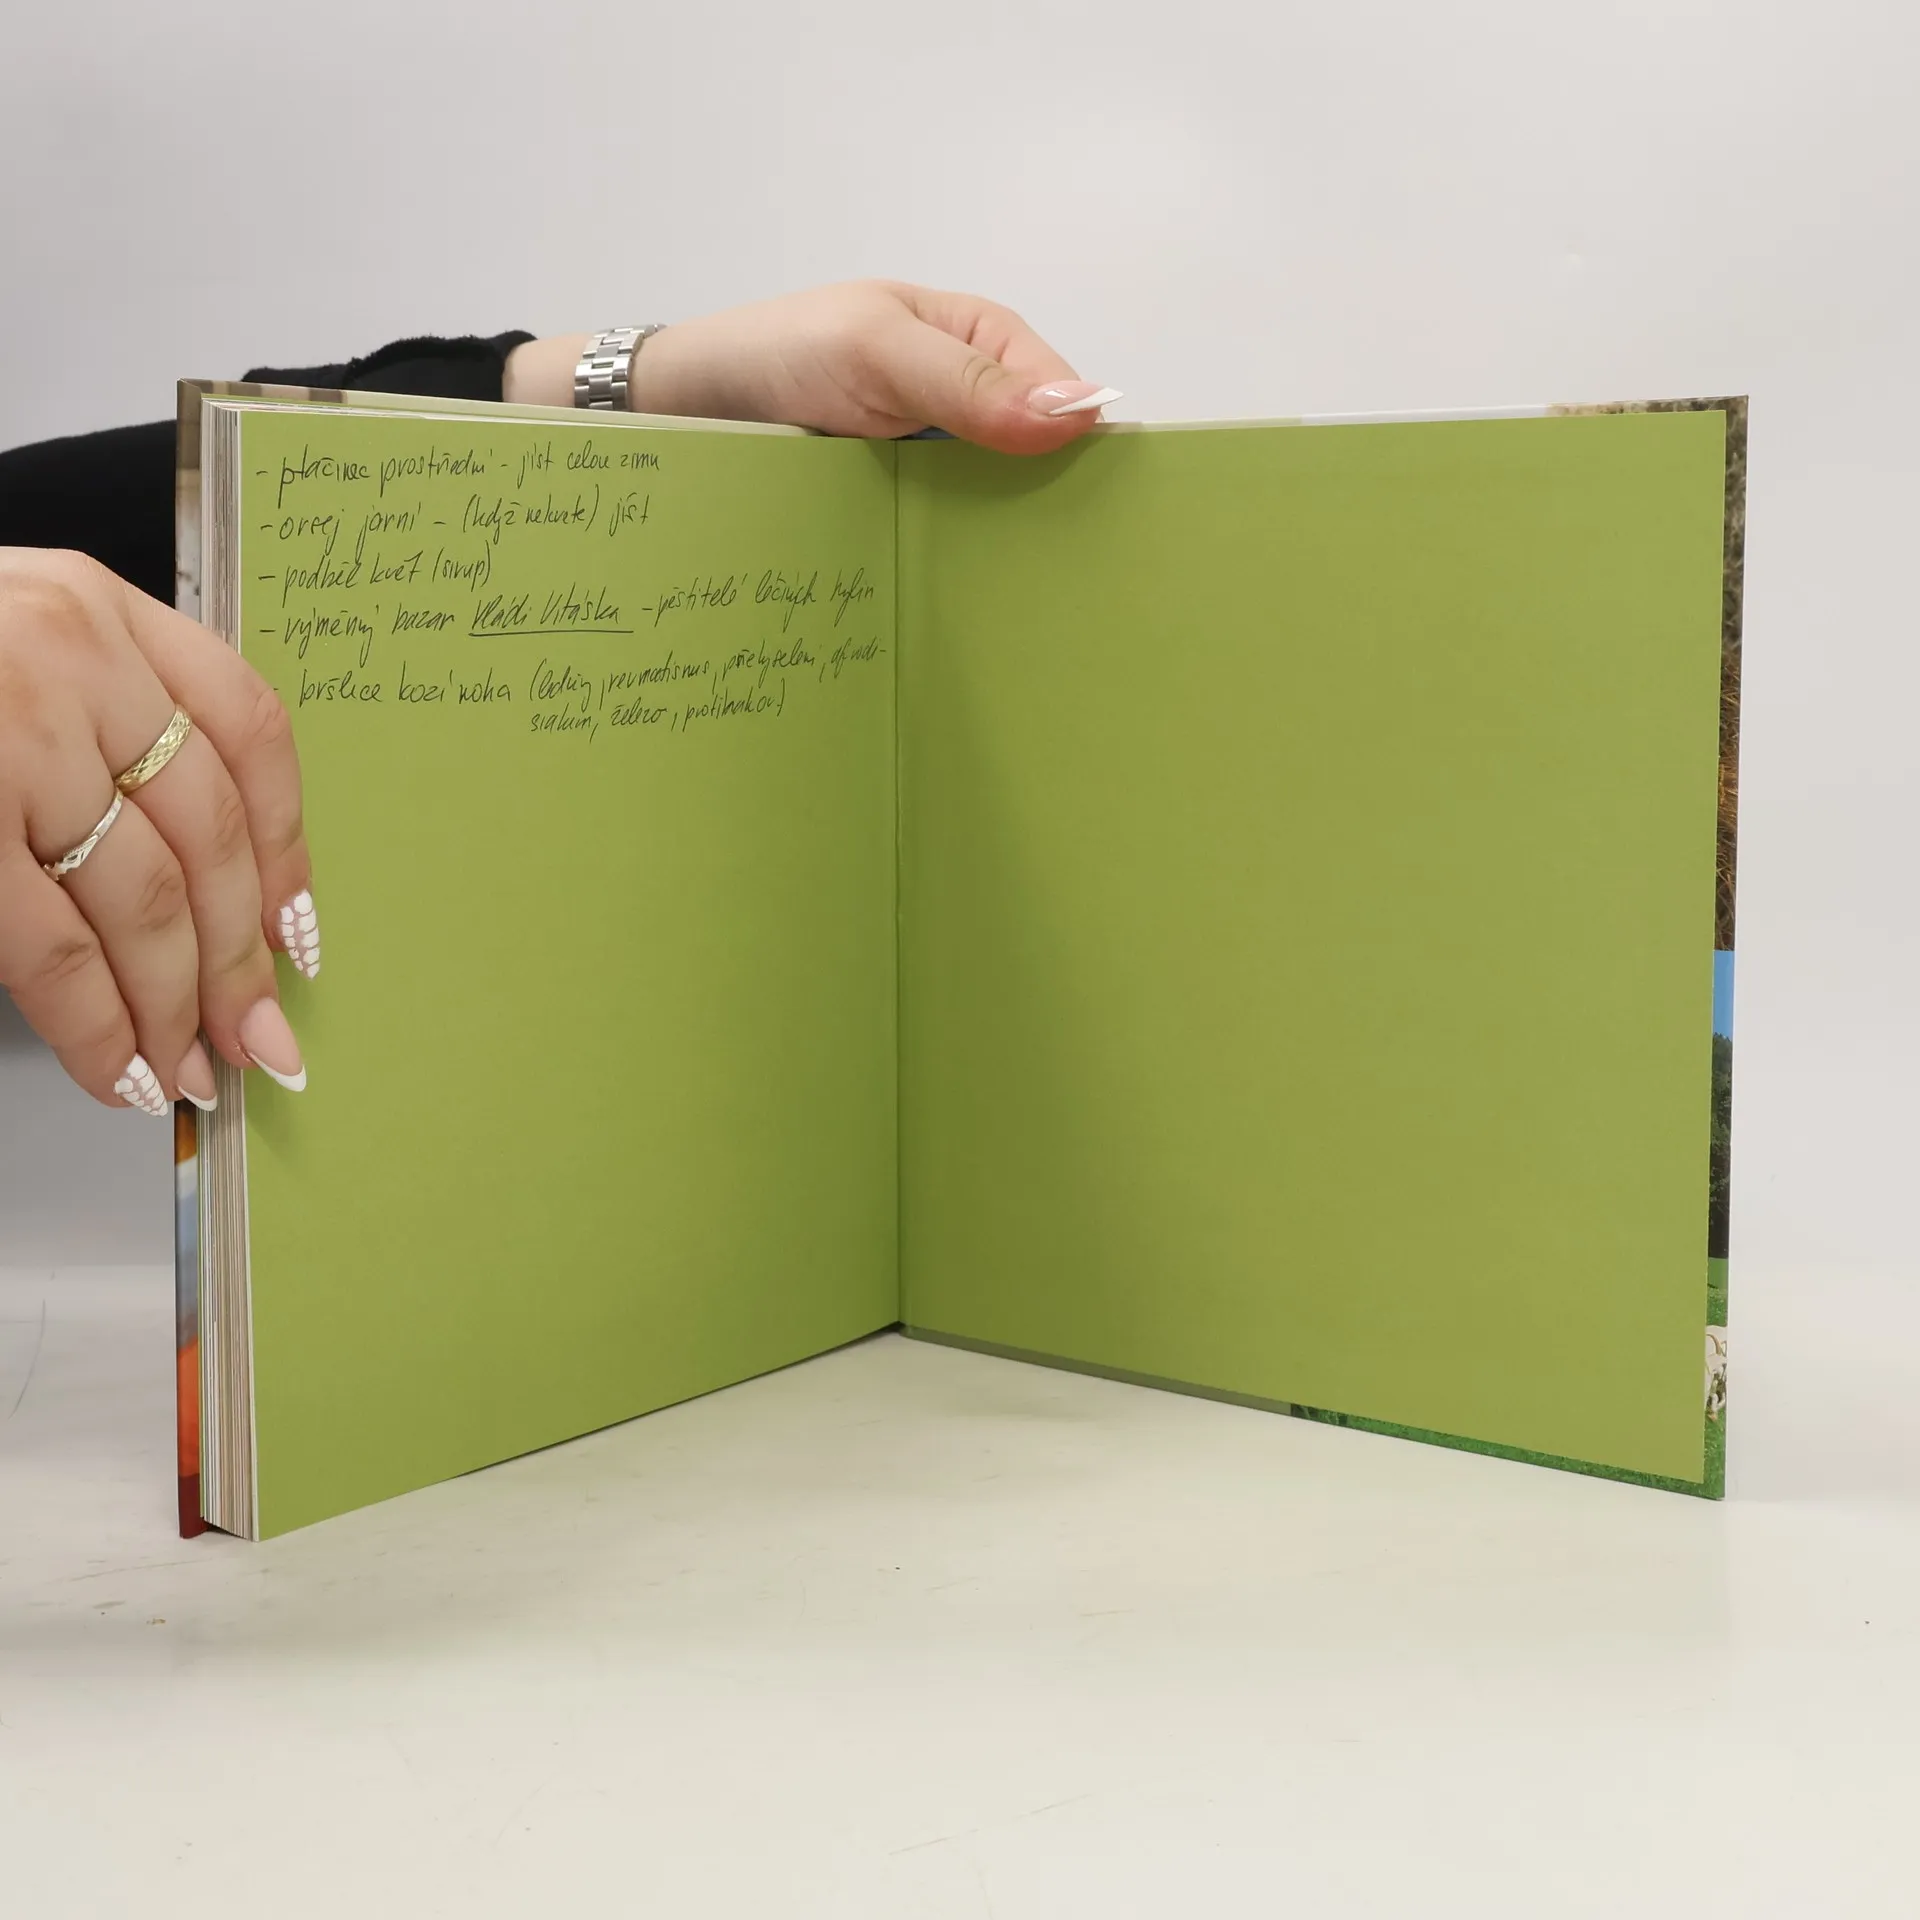 - ptačinec prostřední - jíst celou zimu
- orsej jarní - (když nekvete) jíst
- podběl květ (sirup)
- výměnný bazar Vládi Vitáska - pěstitelé léčivých bylin
- bršlice kozí noha (ledviny, revmatismus, překyselení, afrodi-
siakum, železo, protirakov.)